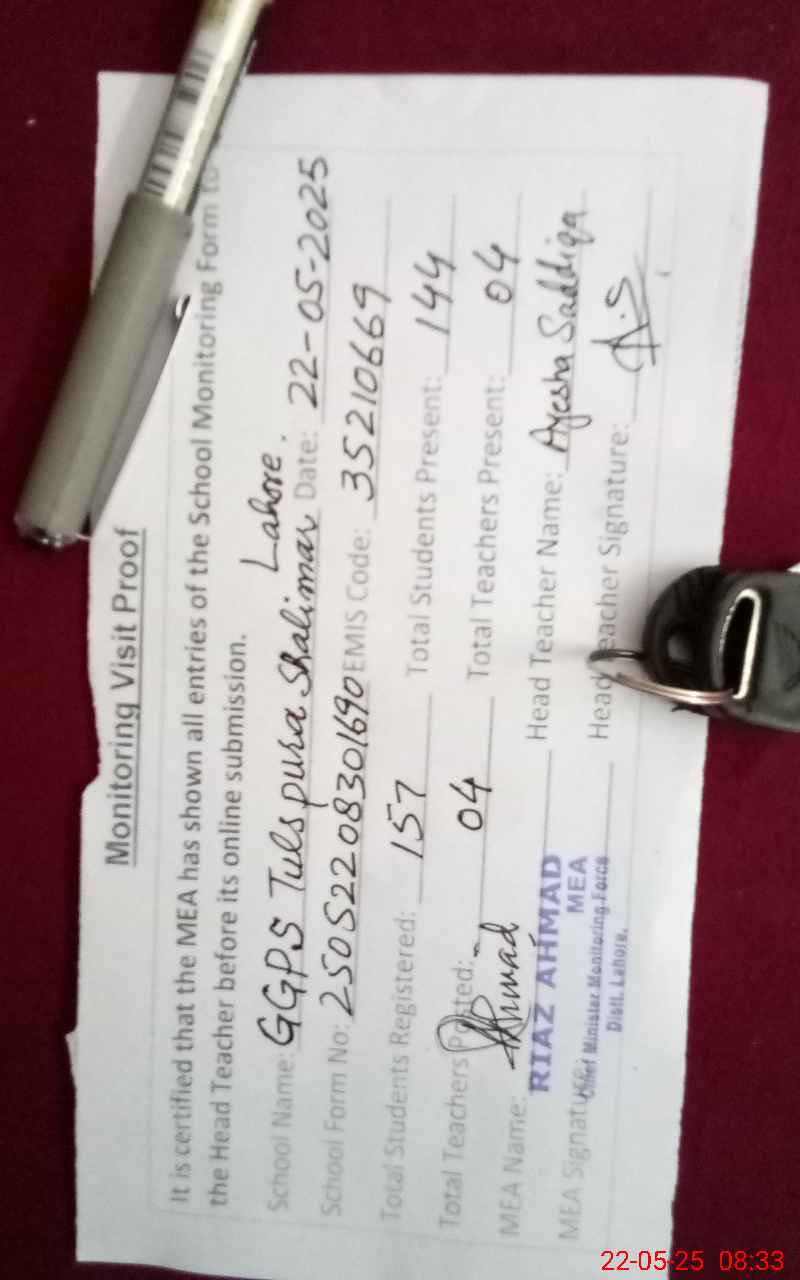 Monitoring Visit Proof
It is certified that the MEA has shown all entries of the School Monitoring Form to
the Head Teacher before its online submission.
Lahore.
School Name: GGPS Tulspura Shalimar Date: 22-05-2025
School Form No: 25052208301690 EMIS Code: 35210669
Total Students Registered: 157 Total Students Present: 144
Total Teachers Posted: 04 Total Teachers Present: 04
MEA Name: RIAZ AHMAD Head Teacher Name: Ayesha Saddiqa
MEA
MEA Signature: Head Teacher Signature: A.S
Chief Minister Monitoring Force
Distt. Lahore.
22-05-25 08:33